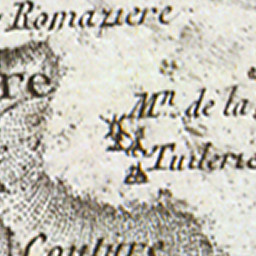 Romaziere
re
Mⁿ de la
Tuilerie
Couture